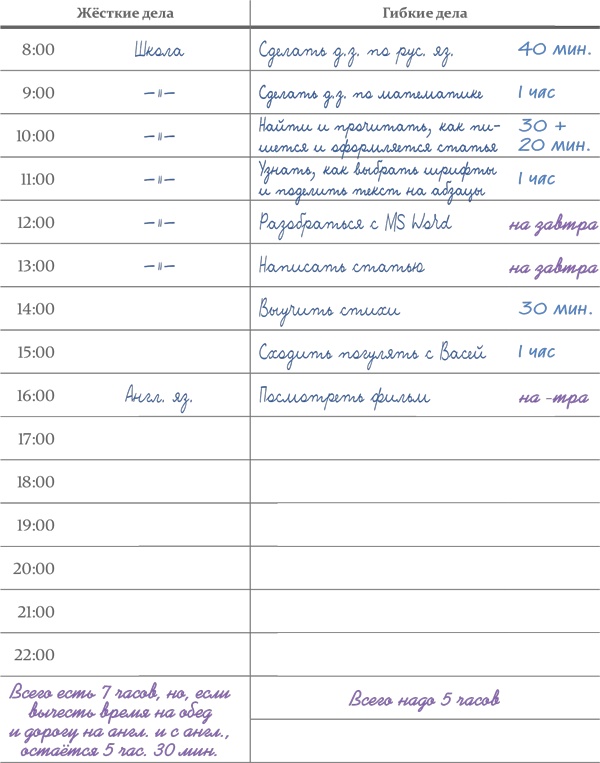 Жёсткие дела Гибкие дела
8:00 Школа Сделать д.з. по рус. яз. 40 мин.
9:00 –"– Сделать д.з. по математике 1 час
10:00 –"– Найти и прочитать, как пи- 30 +
шется и оформляется статья 20 мин.
11:00 –"– Узнать, как выбрать шрифты 1 час
и поделить текст на абзацы
12:00 –"– Разобраться с MS Word на завтра
13:00 –"– Написать статью на завтра
14:00 Выучить стихи 30 мин.
15:00 Сходить погулять с Васей 1 час
16:00 Англ. яз. Посмотреть фильм на -тра
17:00
18:00
19:00
20:00
21:00
22:00
Всего есть 7 часов, но, если Всего надо 5 часов
вычесть время на обед
и дорогу на англ. и с англ.,
остаётся 5 час. 30 мин.